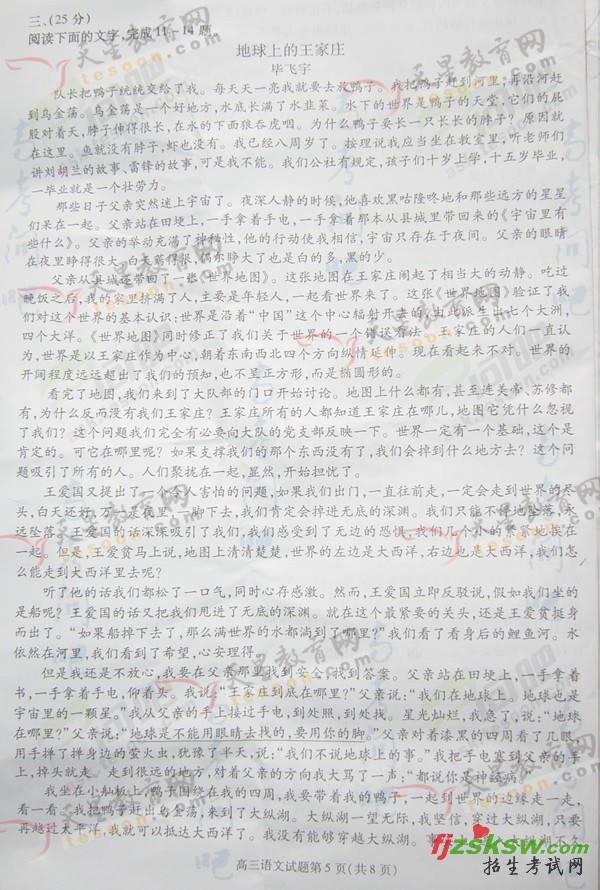 三、(25分)
阅读下面的文字,完成11—14题。
地球上的王家庄
毕飞宇
队长把鸭子统统交给了我。每天天一亮我就要去放鸭子。我把鸭子赶到河里,再沿河赶
到乌金荡。乌金荡是一个好地方,水底长满了水韭菜。水下的世界是鸭子的天堂,它们的屁
股对着天,脖子伸得很长,在水的下面狼吞虎咽。为什么鸭子要长一只长长的脖子?原因就
在这里。鱼就没有脖子,虾也没有。我已经八周岁了。按理说我应当坐在教室里,听老师们
讲刘胡兰的故事、雷锋的故事,可是我不能。我们公社有规定,孩子们十岁上学,十五岁毕业,
一毕业就是一个壮劳力。
那些日子父亲突然迷上宇宙了。夜深人静的时候,他喜欢黑咕隆咚地和那些远方的星星
们呆在一起。父亲站在田埂上,一手拿着手电,一手拿着那本从县城里带回来的《宇宙里有
些什么》。父亲的举动充满了神秘性,他的行动使我相信,宇宙只存在于夜间。父亲的眼睛
在夜里睁得很大,白天萎得很,偶尔睁大了也是白的多,黑的少。
父亲从县城还带回了一张《世界地图》。这张地图在王家庄闹起了相当大的动静。吃过
晚饭之后,我的家里挤满了人,主要是年轻人,一起看世界来了。这张《世界地图》验证了我
们对这个世界的基本认识:世界是沿着“中国”这个中心辐射开去的,由此派生出七个大洲,
四个大洋。《世界地图》同时修正了我们关于世界的一个错误看法。王家庄的人们一直认
为,世界是以王家庄作为中心,朝着东南西北四个方向纵情延伸。现在看起来不对。世界的
开阔程度远远超出了我们的预知,也不呈正方形,而是椭圆形的。
看完了地图,我们来到了大队部的门口开始讨论。地图上什么都有,甚至连美帝、苏修都
有,为什么反而没有我们王家庄?王家庄所有的人都知道王家庄在哪儿,地图它凭什么忽视
了我们?这个问题我们完全有必要向大队的党支部反映一下。世界一定有一个基础,这个是
肯定的。可它在哪里呢?如果支撑我们的那个东西没有了,我们会掉到什么地方去?这个问
题吸引了所有的人。人们聚拢在一起,显然,开始担忧了。
王爱国又提出了一个令人害怕的问题,如果我们出门,一直往前走,一定会走到世界的尽
头,白天还好,万一是夜里,一脚下去,我们肯定会掉进无底的深渊。我们只能不停地坠落,永
远坠落。王爱国的话深深吸引了我们,我们感受到了无边的恐惧,我们几个小的紧紧地挨在
一起。但是,王爱贫马上说,地图上清清楚楚,世界的左边是大西洋,右边也是大西洋,我们怎
么能走到大西洋里去呢?
听了他的话我们都松了一口气,同时心存感激。然而,王爱国立即反驳说,假如我们坐的
是船呢?王爱国的话又把我们甩进了无底的深渊。就在这个最紧要的关头,还是王爱贫挺身
而出了。“如果船掉下去了,那么满世界的水都淌到了哪里?”我们看了看身后的鲤鱼河。水
依然在河里,我们看到了希望,心安理得。
但是我还是不放心,我要在父亲那里找到安全,找到答案。父亲站在田埂上,一手拿着
书,一手拿着手电,仰着头。我说:“王家庄到底在哪里?”父亲说:“我们在地球上。地球也是
宇宙里的一颗星。”我从父亲的手上接过手电,到处照,到处找。星光灿烂,我急了,说:“地球
在哪里?”父亲说:“地球是不能用眼睛去找的,要用你的脚。”父亲对着漆黑的四周看了几眼,
用手掸了掸身边的萤火虫,犹豫了半天,说:“我们不说地球上的事。”我把手电塞到父亲的手
上,掉头就走。走到很远的地方,对着父亲的方向大骂了一声:“都说你是神经病!”
我坐在小舢板上,鸭子围绕在我的四周,我要带着我的鸭子,一起到世界的边缘走一走,
看一看。我把鸭子赶出乌金荡,来到了大纵湖。大纵湖一望无际,我坚信,穿过大纵湖,只要
再越过太平洋,我就可以抵达大西洋了。我没有能够穿越大纵湖。事
高三语文试题第5页(共8页)
天星教育网
tesoon.com
fjzsksw.com
招生考试网